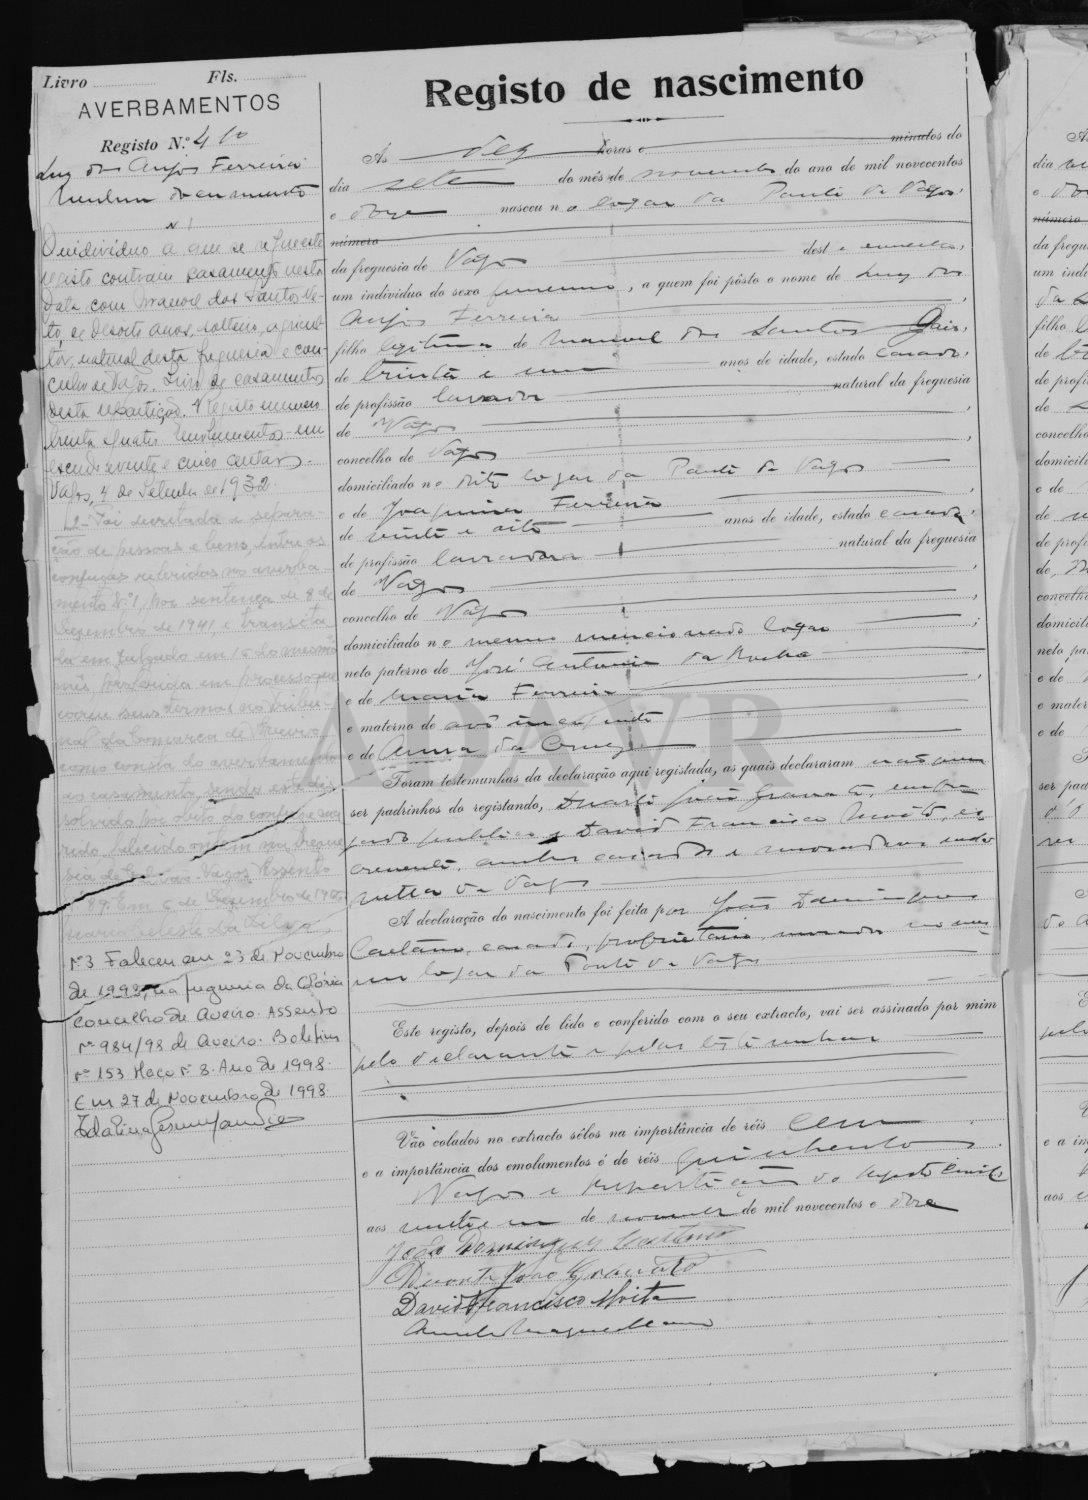 Livro Fls.
AVERBAMENTOS
Registo N.º 410
Luz dos Anjos Ferreira
Nenhum documento
Nº 1
O individuo a que se refere este
registo contraiu casamento nesta
data com Manoel dos Santos Ne-
to, de desoito anos, solteiro, agricul-
tor, natural desta freguesia e con-
celho de Vagos. Livro de casamentos
desta repartição. Registo numero
trinta quatro Emolumentos um
escudo e vinte e cinco centavos.
Vagos, 4 de Setembro de 1932
2- Foi decretada a separa-
ção de pessoas e bens, entre os
conjuges referidos no averba-
mento N.º 1, por sentença de 8 de
Dezembro de 1941, e transita-
da em julgado em do mesmo
mês proferida em processo que
correu seus termos no Tribu-
nal da Comarca de Aveiro,
como consta do averbamento
ao casamento, sendo este dis-
solvido por obito do conjuge ma-
rido, falecido ontem na fregue-
sia de Vagos Assento
89. Em 6 de Dezembro de
Maria Celeste da Silva
Nº 3 Faleceu em 23 de Novembro
de 1998, na freguesia da Glória
Concelho de Aveiro. Assento
nº 984/98 de Aveiro. Boletim
nº 153 Maço nº 8. Ano de 1998.
Em 27 de Novembro de 1998.
Registo de nascimento
Às dez horas e minutos do
dia sete do mês de novembro do ano de mil novecentos
e doze nasceu no logar da Ponte de Vagos,
número
da freguesia de Vagos deste concelho,
um individuo do sexo feminino, a quem foi pôsto o nome de Luz dos
Anjos Ferreira,
filho legitimo de Manoel dos Santos
de trinta e um anos de idade, estado casado,
de profissão lavrador natural da freguesia
de Vagos,
concelho de Vagos,
domiciliado no dito logar da Ponte de Vagos
e de Joaquina Ferreira,
de vinte e oito anos de idade, estado casada,
de profissão lavradora natural da freguesia
de Vagos,
concelho de Vagos,
domiciliado no mesmo mencionado logar;
neto paterno de José Antonio da Rocha
e de Maria Ferreira,
e materno de avô incognito
e de Anna da Cruz
Foram testemunhas da declaração aqui registada, as quais declararam não
ser padrinhos do registando, Duarte João Granato, empre
gado publico e David Francisco Moita,
ambos casados e moradores nesta
villa de Vagos
A declaração do nascimento foi feita por João Domingues
Caetano, casado, proprietario, morador no mes
mo logar da Ponte de Vagos
Este registo, depois de lido e conferido com o seu extracto, vai ser assinado por mim
pelo declarante e pelas testemunhas
Vão colados no extracto sêlos na importância de réis cem
e a importância dos emolumentos é de réis quinhentos
Vagos e repartição do registo civil,
aos vinte e um de novembro de mil novecentos e doze
João Domingues Caetano
Duarte João Granato
David Francisco Moita
ADAVR